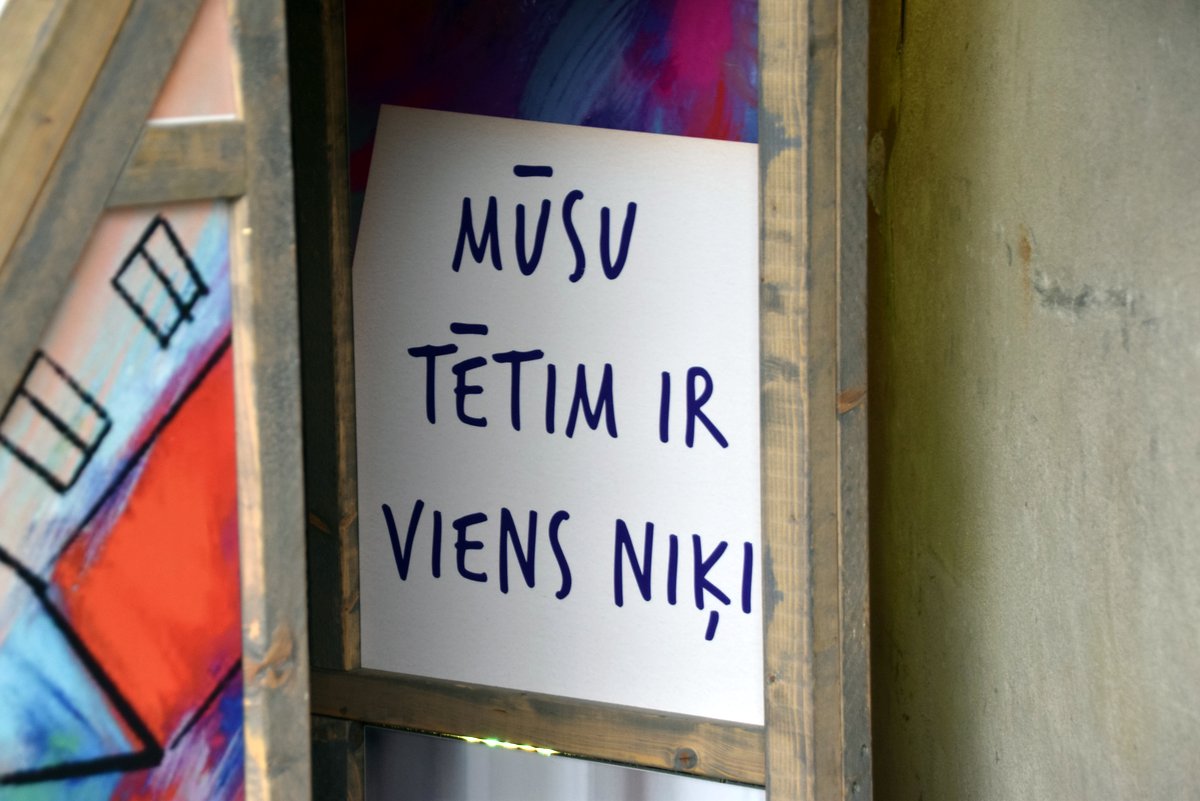 MŪSU
TĒTIM IR
VIENS NIĶI